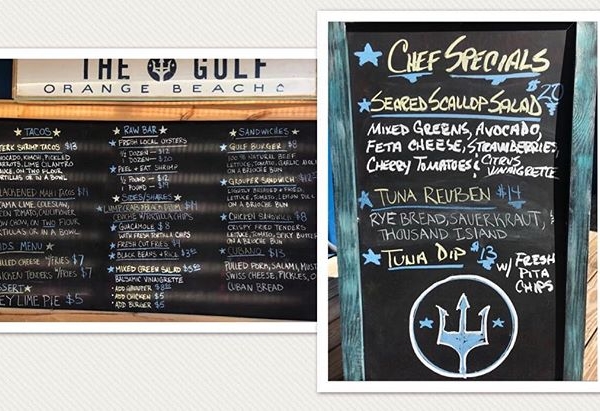 THE GULF
ORANGE BEACH
★ TACOS ★
SHRIMP TACOS $13
KIMCHI, PICKLED
LIME CILANTRO
SAUCE, ON TWO FLOUR
TORTILLAS OR IN A BOWL
BLACKENED MAHI TACOS $14
LIME, COLESLAW,
TOMATO, CAULIFLOWER
CHOW CHOW, ON TWO FLOUR
TORTILLAS OR IN A BOWL
KIDS MENU ★
GRILLED CHEESE W/FRIES $7
CHICKEN TENDERS W/FRIES $7
DESSERT ★
KEY LIME PIE $5
★ RAW BAR ★
★ FRESH LOCAL OYSTERS
½ DOZEN — $12
1 DOZEN — $20
★ PEEL + EAT SHRIMP
½ POUND — $12
1 POUND — $19
★ SIDES/SHARES ★
CEVICHE W/TORTILLA CHIPS
★ GUACAMOLE $8
WITH FRESH TORTILLA CHIPS
★ FRESH CUT FRIES $4
★ BLACK BEANS + RICE
★ MIXED GREEN SALAD
BALSAMIC VINAIGRETTE
• ADD GROUPER $8
• ADD CHICKEN $5
• ADD BURGER $5
★ SANDWICHES ★
★ GULF BURGER $8
100% NATURAL BEEF
LETTUCE, TOMATO, GARLIC
ON A BRIOCHE BUN
★ GROUPER SANDWICH $12
LIGHTLY BREADED + FRIED,
LETTUCE, TOMATO, LEMON DILL
ON A BRIOCHE BUN
★ CHICKEN SANDWICH $8
CRISPY FRIED TENDERS
LETTUCE, TOMATO, SPICY BUTTER
ON A BRIOCHE BUN
★ CUBANO $13
PULLED PORK, SALAMI,
SWISS CHEESE, PICKLES,
CUBAN BREAD
★ CHEF SPECIALS
★ SEARED SCALLOP SALAD $20
MIXED GREENS, AVOCADO,
FETA CHEESE, STRAWBERRIES,
CHERRY TOMATOES & CITRUS
VINAIGRETTE
★ TUNA REUBEN $14
RYE BREAD, SAUERKRAUT, &
THOUSAND ISLAND
★ TUNA DIP $13
W/ FRESH
PITA
CHIPS